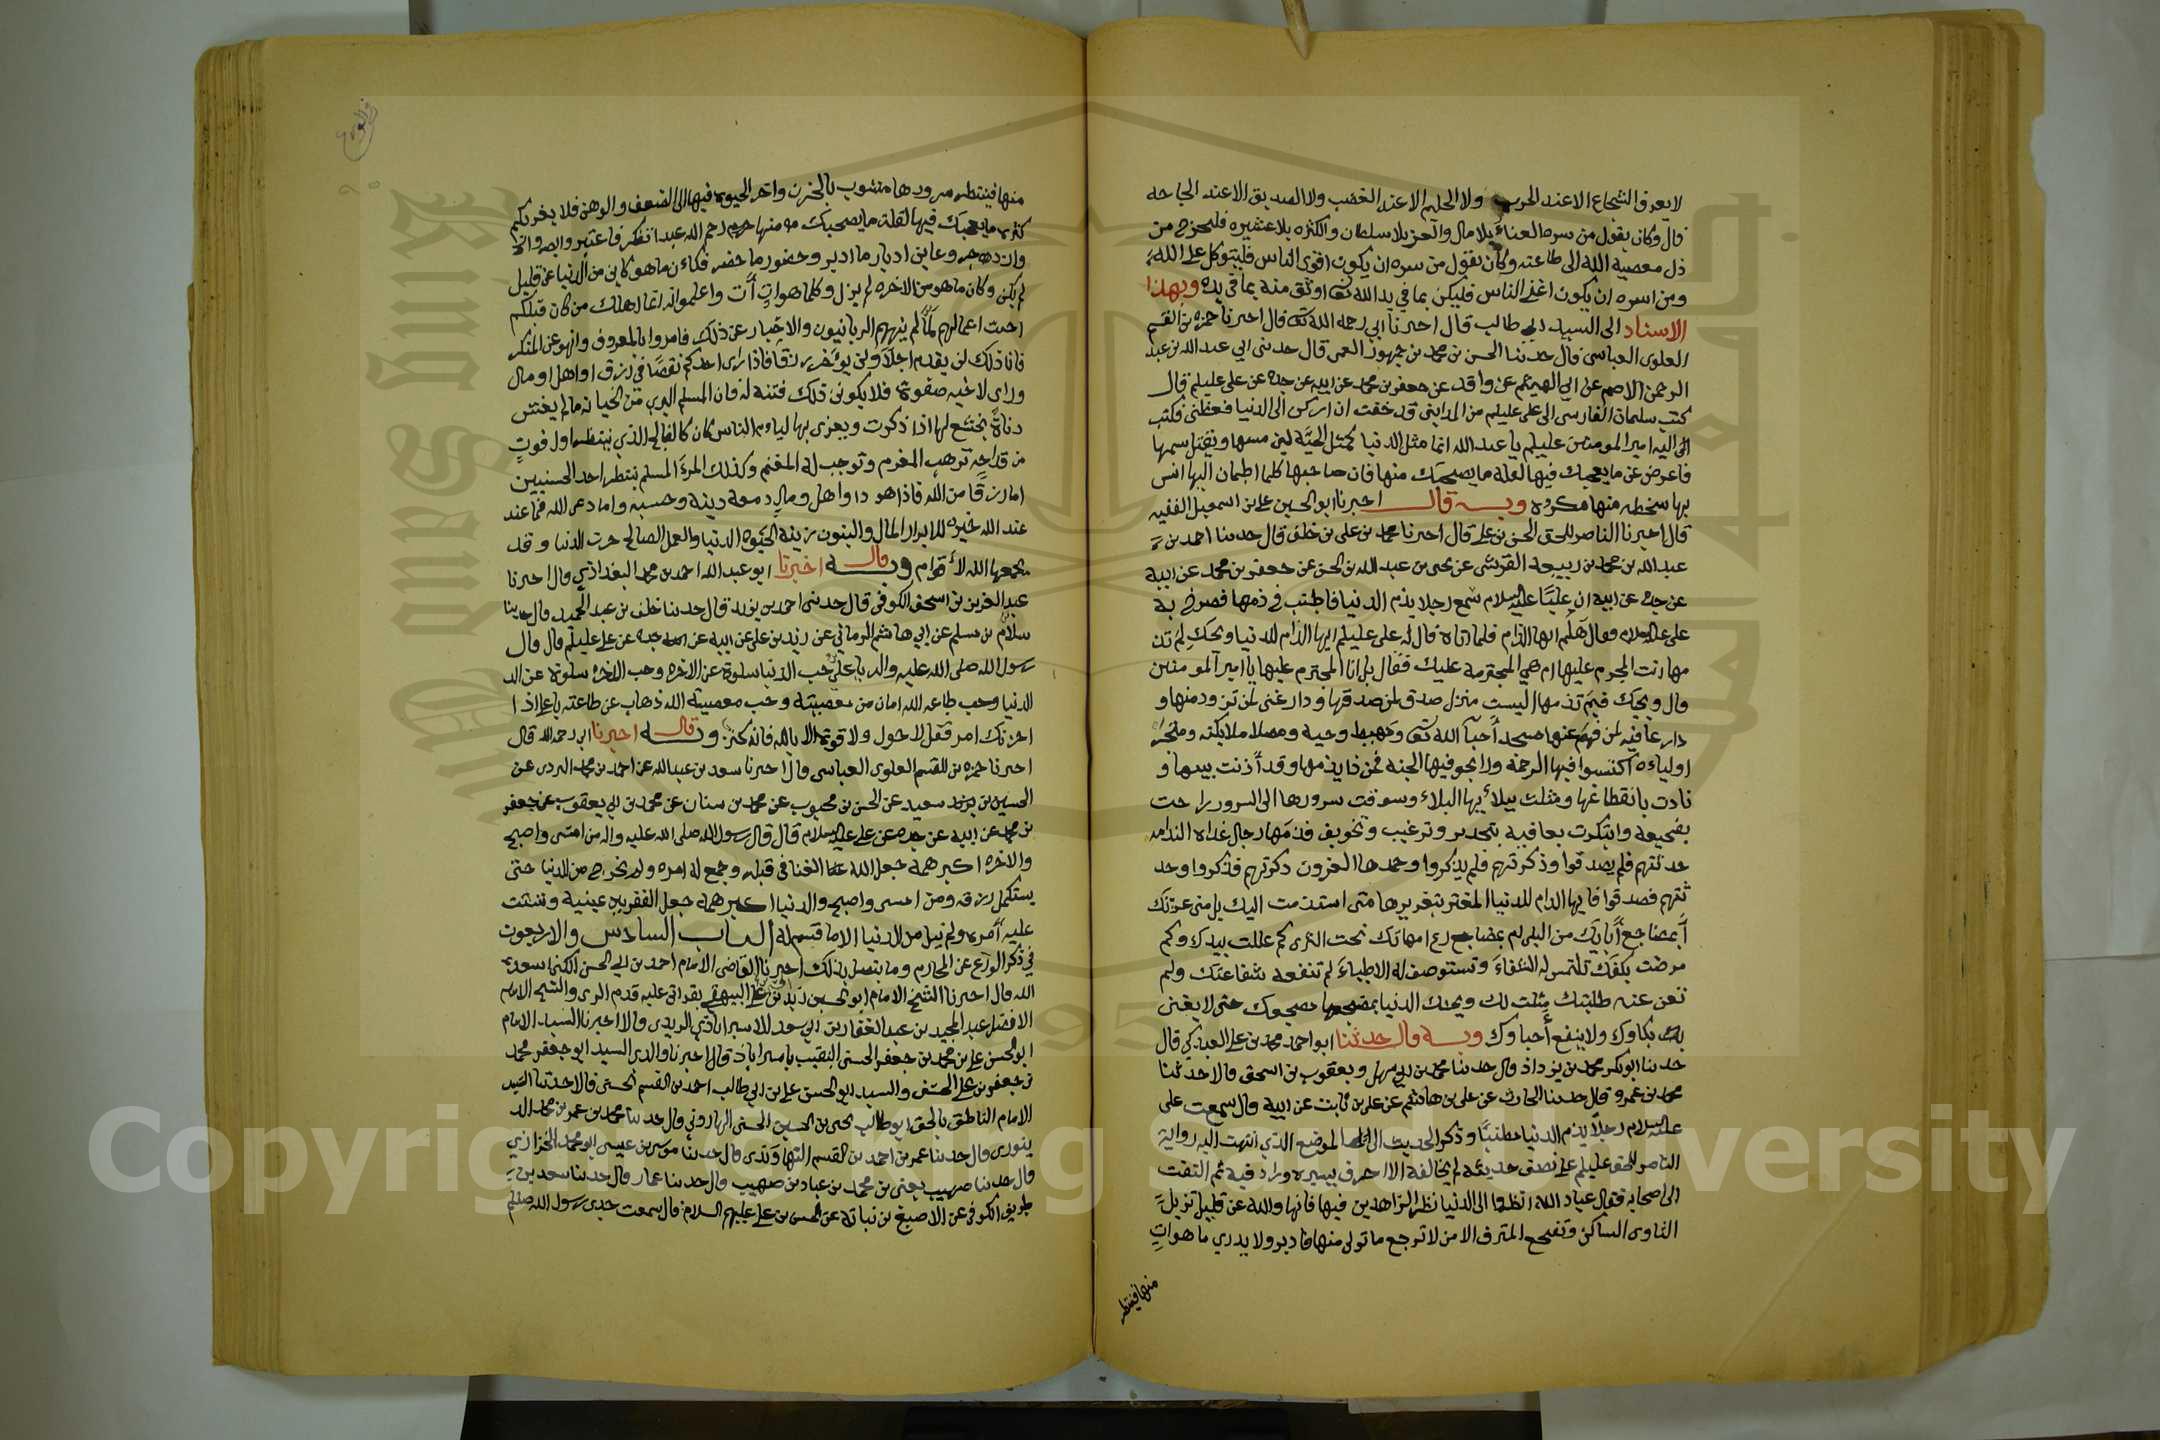 لا يعرف الشجاع الا عند الحرب ولا الحليم الا عند الغضب ولا الصديق الا عند الحاجه
قال وكان يقول من سره الغناء بلا مال والعز بلا سلطان والكثره بلا عشيره فليخرج من
ذل معصية الله الى طاعته وكان يقول من سره ان يكون اقوى الناس فليتوكل على الله
ومن اسره ان يكون اغنى الناس فليكن بما في يد الله تعا اوثق منه بما في يده وبهذا
الاسناد الى السيد ابي طالب قال اخبرنا ابي رحمه الله تعا قال اخبرنا حمزه بن القسم
العلوى العباسى قال حدثنا الحسن بن محمد بن جمهور العمى قال حدثنى ابي عبد الله بن عبد
الرحمن الاصم عن ابي الهيثم عن واقد عن جعفر بن محمد عن ابيه عن جده عن على عليلم قال
كتب سلمان الفارسى الى على عليلم من المداين قد خفت ان اركن الى الدنيا فعظنى فكتب
الى اليه امير المومنين عليلم يا عبد الله انما مثل الدنيا كمثل الحيّة لين مسها ويقتل سمها
فاعرض عن ما يعجبك فيها لقلة ما يصحبك منها فان صاحبها كلما اطمان اليها انس
بها سخطه منها مكروه وبه قال اخبرنا ابو الحسين على بن اسمعيل الفقيه
قال اخبرنا الناصر للحق الحسن بن على قال اخبرنا محمد بن على بن خلف قال حدثنا احمد بن
عبد الله بن محمد بن ربيعه القرشى عن يحيى بن عبد الله بن الحسن عن جعفر بن محمد عن ابيه
عن جده عن ابيه ان عليّا عليه السلام سمع رجلا يذم الدنيا فاطنب في ذمها فصرخ به
على عليه السلام فقال هَلُم ايها الذام فلما اتاه قال له على عليلم ايها الذام للدنيا ويحك لِمَ تذ
مها انت المجرم عليها ام هي المجترمه عليك فقال بل انا المجترم عليها يا امير المومنين
قال ويحك فيمَ تذمها اليست منزل صدق لمن صدقها ودار غنى لمن تزود منها و
دار عافيه لمن فهم عنها مسجد أحبآء الله تعا ومهبط وحيه ومصلا ملايكته ومتجر
اولياءه اكتسبوا فيها الرحمة ورابحو فيها الجنة فمن ذا يذمها وقد أذنت ببينها و
نادت بانقطاعها ومثلت ببلائها البلاء وبسوقت سرورها الى السرور راحت
بفجيعة وابتكرت بعافية بتحذير وترغيب وتخويف فذمَها رجال غداه الندامه
حدثتهم فلم يصدقوا وذكرتهم فلم يذكروا وحمدها اخرون ذكرتهم فذكروا وحد
ثتهم فصدقوا فايها الذام للدنيا المغتر بتغريرها متى استذمت اليك بل متى عزتك
أبمضاجع أبايك من البلى ام بمضاجع امهاتك تحت الثرى كم عللت بيدك وكم
مرضت بكفك تلتمس له الشفاءَ وتستوصف له الاطباءَ لم تنفعه شفاعتك ولم
تعن عنه طلبتك مثلت لك ويحك الدنيا بمضجعها مضجعك حتى لا يغنى
بك بكاوك ولا ينفع أحباوك وبه قال حدثنا ابو احمد محمد بن على العبدكي قال
حدثنا ابو بكر محمد بن يزداذ قال حدثنا محمد بن ابي سهل ويعقوب بن اسحق قالا حدثنا
محمد بن عمرو قال حدثنا الحارث عن على بن هاشم عن على بن ثابت عن ابيه قال سمعت على
عليه السلام رجلا يذم الدنيا مطنبًا وذكر الحديث الى الموضع الذي انتهت اليه رواية
الناصر للحق عليلم على نصق حديثه لم يخالفه الا احرف يسيره وزاد فيه ثم التفت
الى اصحابه فقال عباد الله انظروا الى الدنيا نظر الزاهدين فيها فانها والله عن قليل تزيل
الثاوى الساكن وتفجع المترف الامن لا ترجع ما تولى منها فادبر ولا يدري ما هوات
منها فينتظر
منها فينتظر سرورها مشوب بالحزن واخر الحيوة فيها الى الضعف والوهن فلا يغرنكم
كثره ما يعجبك فيها لقلة ما يصحبك منها رحم الله عبدا تفكر فاعتبر وابصر
وازدجر وعاين ادبار ما ادبر وحضور ما حضر فكان ما هو كاين من الدنيا عن قليل
لم يكن وكان ما هو من الاخره لم يزل وكلما هوات أت واعلموا انه انما اهلك من كان قبلكم
خبث اعمالهم لمّا لم ينههم الربانيون والاخبار عن ذلك فامروا بالمعروف وانهو عن المنكر
فان ذلك لن يقدم اجلا ولن يوخر رزقا فاذا راى احدكم نقصًا في رزق او اهل او مال
وراى لاخيه صفوة فلا يكونن ذلك فتنة له فان المسلم البري من الخيانه مالم يغتش
دناة يخشع لها اذا ذكرت ويغرى بها لياءم الناس كان كالفالج الذي ينتظر اول فوت
من قداحِه ترهب المغرم وتوجب له المغنم وكذلك المرؤ المسلم ينتظر احد الحسنيين
اما رزقا من الله فاذا هو ذا واهل ومال ومعه دينة وحسبه واما دعى الله فما عند
عند الله خير للابرار المال والبنون زينة الحيوه الدنيا والعمل الصالح حرث الدنيا وقد
يجمعها الله لأقوام وبه قال اخبرنا ابو عبد الله احمد بن محمد البغداذي قال اخبرنا
عبد العزيز بن اسحق الكوفي قال حدثنى احمد بن يزيد قال حدثنا خلف بن عبد الحميد قال حدثنا
سلام بن مسلم عن ابي هاشم الرماني عن زيد بن على عن ابيه عن جده عن على عليلم قال قال
رسول الله صلى الله عليه واله يا على حب الدنيا سلوة عن الاخره وحب الاخره سلوة عن الد
الدنيا وحب طاعه الله امان من معصيته وحب معصيته الله ذهاب عن طاعته يا على اذا
احزنك امر فقل لا حول ولا قوة الا بالله فانه كنز وبه قال اخبرنا ابي رحمه الله قال
اخبرنا حمزه بن القسم العلوى العباسى قال اخبرنا سعد بن عبد الله عن احمد بن محمد البردى عن
الحسين بن يزيد سعيد عن الحسن بن محبوب عن محمد بن سنان عن محمد بن ابي يعقوب عن جعفر
بن محمد عن ابيه عن جده عن على عليه السلام قال قال رسول الله صلى الله عليه واله من امسى واصبح
والاخره اكبر همه جعل الله تعا الغنا في قبله وجمع له امره ولم يخرج من الدنيا حتى
يستكمل رزقه ومن امسى واصبح والدنيا اكبر همه جعل الفقر بين عينية وشتت
عليه أمره ولم ينل من الدنيا الا ما قسم له الباب السادس والاربعون
في ذكر الورع عن المحارم وما يتصل بذلك اخبرنا القاضى الامام احمد بن ابي الحسن الكنى اسعده
الله قال اخبرنا الشيخ الامام ابو الحسين زيد بن على البيهقى بقراتى عليه قدم الرى والشيخ الامام
الافضل عبد المجيد بن عبد الغفار بن ابي سعد الاستراباذي الزيدى قالا اخبرنا السيد الامام
ابو الحسن على بن محمد بن جعفر الحسنى النقيب باستراباذ قال اخبرنا والدى السيد ابو جعفر محمد
بن جعفر بن على الحسنى والسيد ابو الحسن على بن ابي طالب احمد بن القسم الحسنى قالا حدثنا السيد
الامام الناطق بالحق ابو طالب يحيى بن الحسين الحسنى الهاروني قال حدثنا محمد بن عمر بن محمد الد
ينورى قال حدثنا عمر بن احمد بن القسم النهاوندى قال حدثنا موسى بن عيسى ابو محمد الخزازي
قال حدثنا صهيب يعنى بن محمد بن عباد بن صهيب قال حدثنا عمار قال حدثنا سعد بن
طريف الكوفي عن الاصبغ بن نباتة عن الحسن بن على عليهم السلام قال سمعت جدى رسول الله صلعم
King Saud University
Copyright © King Saud University